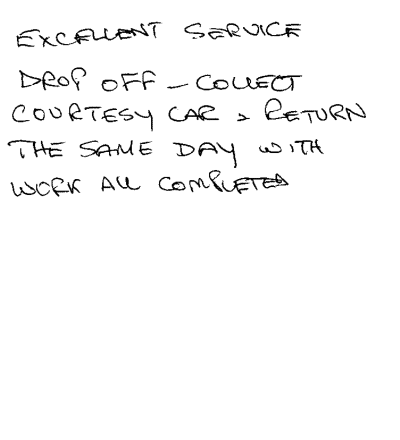 EXCELLENT SERVICE
DROP OFF - COLLECT
COURTESY CAR > RETURN
THE SAME DAY WITH
WORK ALL COMPLETED